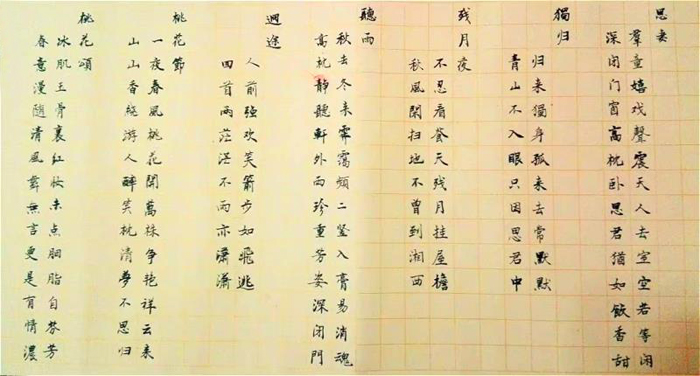 思妻
羣童嬉戏聲震天人去室空若等闲
深闭门窗高枕卧思君犹如飲香甜
獨归
归来獨身孤来去常默默
青山不入眼只因思君中
残月夜
不忍看苍天残月挂屋檐
秋風閑扫地不曾到湘西
聽雨
秋去冬来霏霭频二竖入膏易消魂
高枕靜聽軒外雨珍重芳姿深闭門
迴途
人前强欢笑箭步如飛逃
回首两茫茫不雨亦瀟瀟
桃花節
一夜春風桃花開萬株争艳祥云来
山山香繞游人醉笑枕清夢不思归
桃花頌
冰肌玉骨裹红妆未点胭脂自芬芳
春意漫随清風舞無言更是有情濃